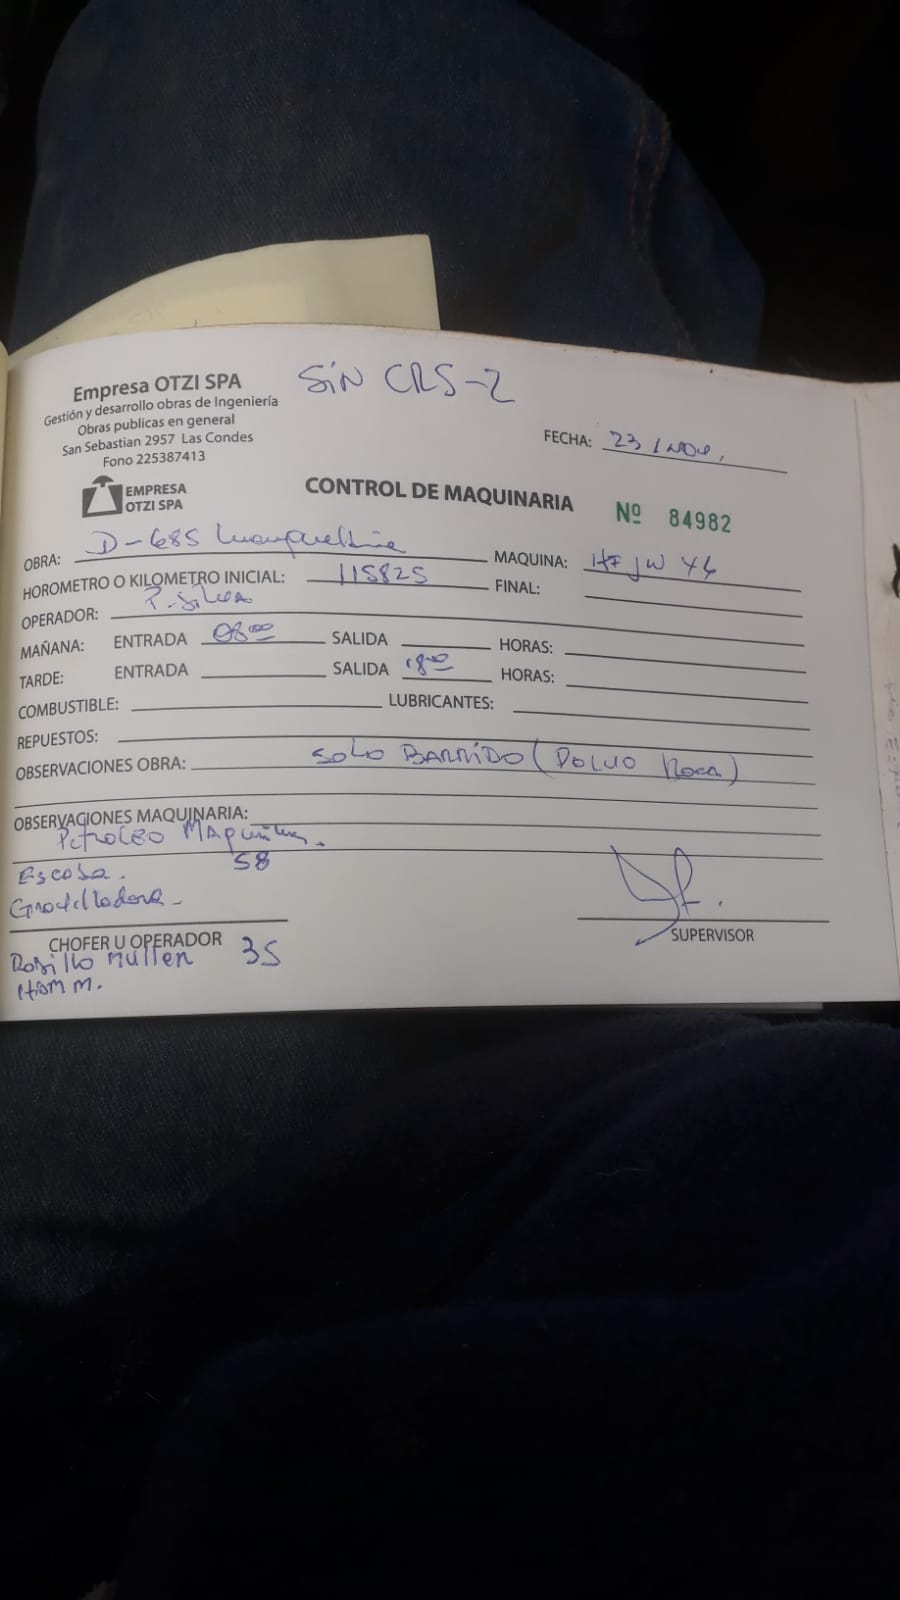 Empresa OTZI SPA
Gestión y desarrollo obras de Ingeniería
Obras publicas en general
San Sebastian 2957 Las Condes
Fono 225387413
EMPRESA
OTZI SPA
SiN CRS-2
FECHA: 23 / NOV.
CONTROL DE MAQUINARIA
Nº 84982
OBRA: D-685
MAQUINA: HF JW 46
HOROMETRO O KILOMETRO INICIAL: 115825 FINAL:
OPERADOR: P. Silva
MAÑANA: ENTRADA 08:00 SALIDA HORAS:
TARDE: ENTRADA SALIDA 18:00 HORAS:
COMBUSTIBLE: LUBRICANTES:
REPUESTOS:
OBSERVACIONES OBRA: SOLO BARRIDO (POLVO Roca)
OBSERVACIONES MAQUINARIA:
Petroleo Maquinas.
Escoba. 58
Gravilladora -
CHOFER U OPERADOR
SUPERVISOR
Rodillo Muller 35
HAMM.